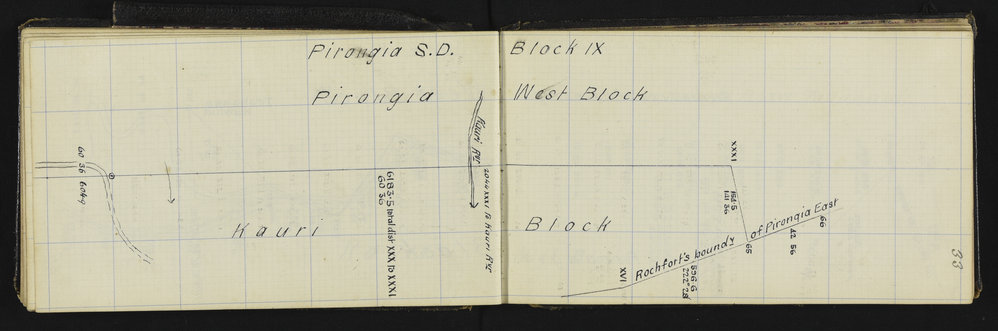 Pirongia S.D. Block IX
Pirongia West Block
Kauri Block
60 36 6049
6183·5 total dist XXX to XXXI
60 36
Kauri Rvr
2044 XXXI to Kauri Rvr
XXXI
164·5
XVI
Rochfort's boundy of Pirongia East
596·6
222° 28
65
42 56
66
33